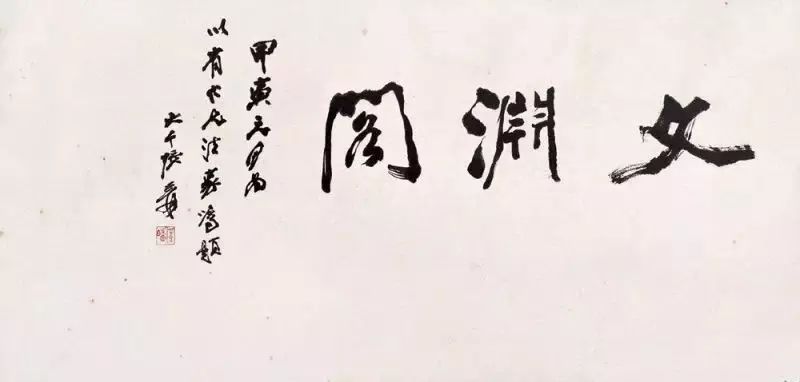 文淵閣
甲寅月為
以有仁兄法家題
大千張爰